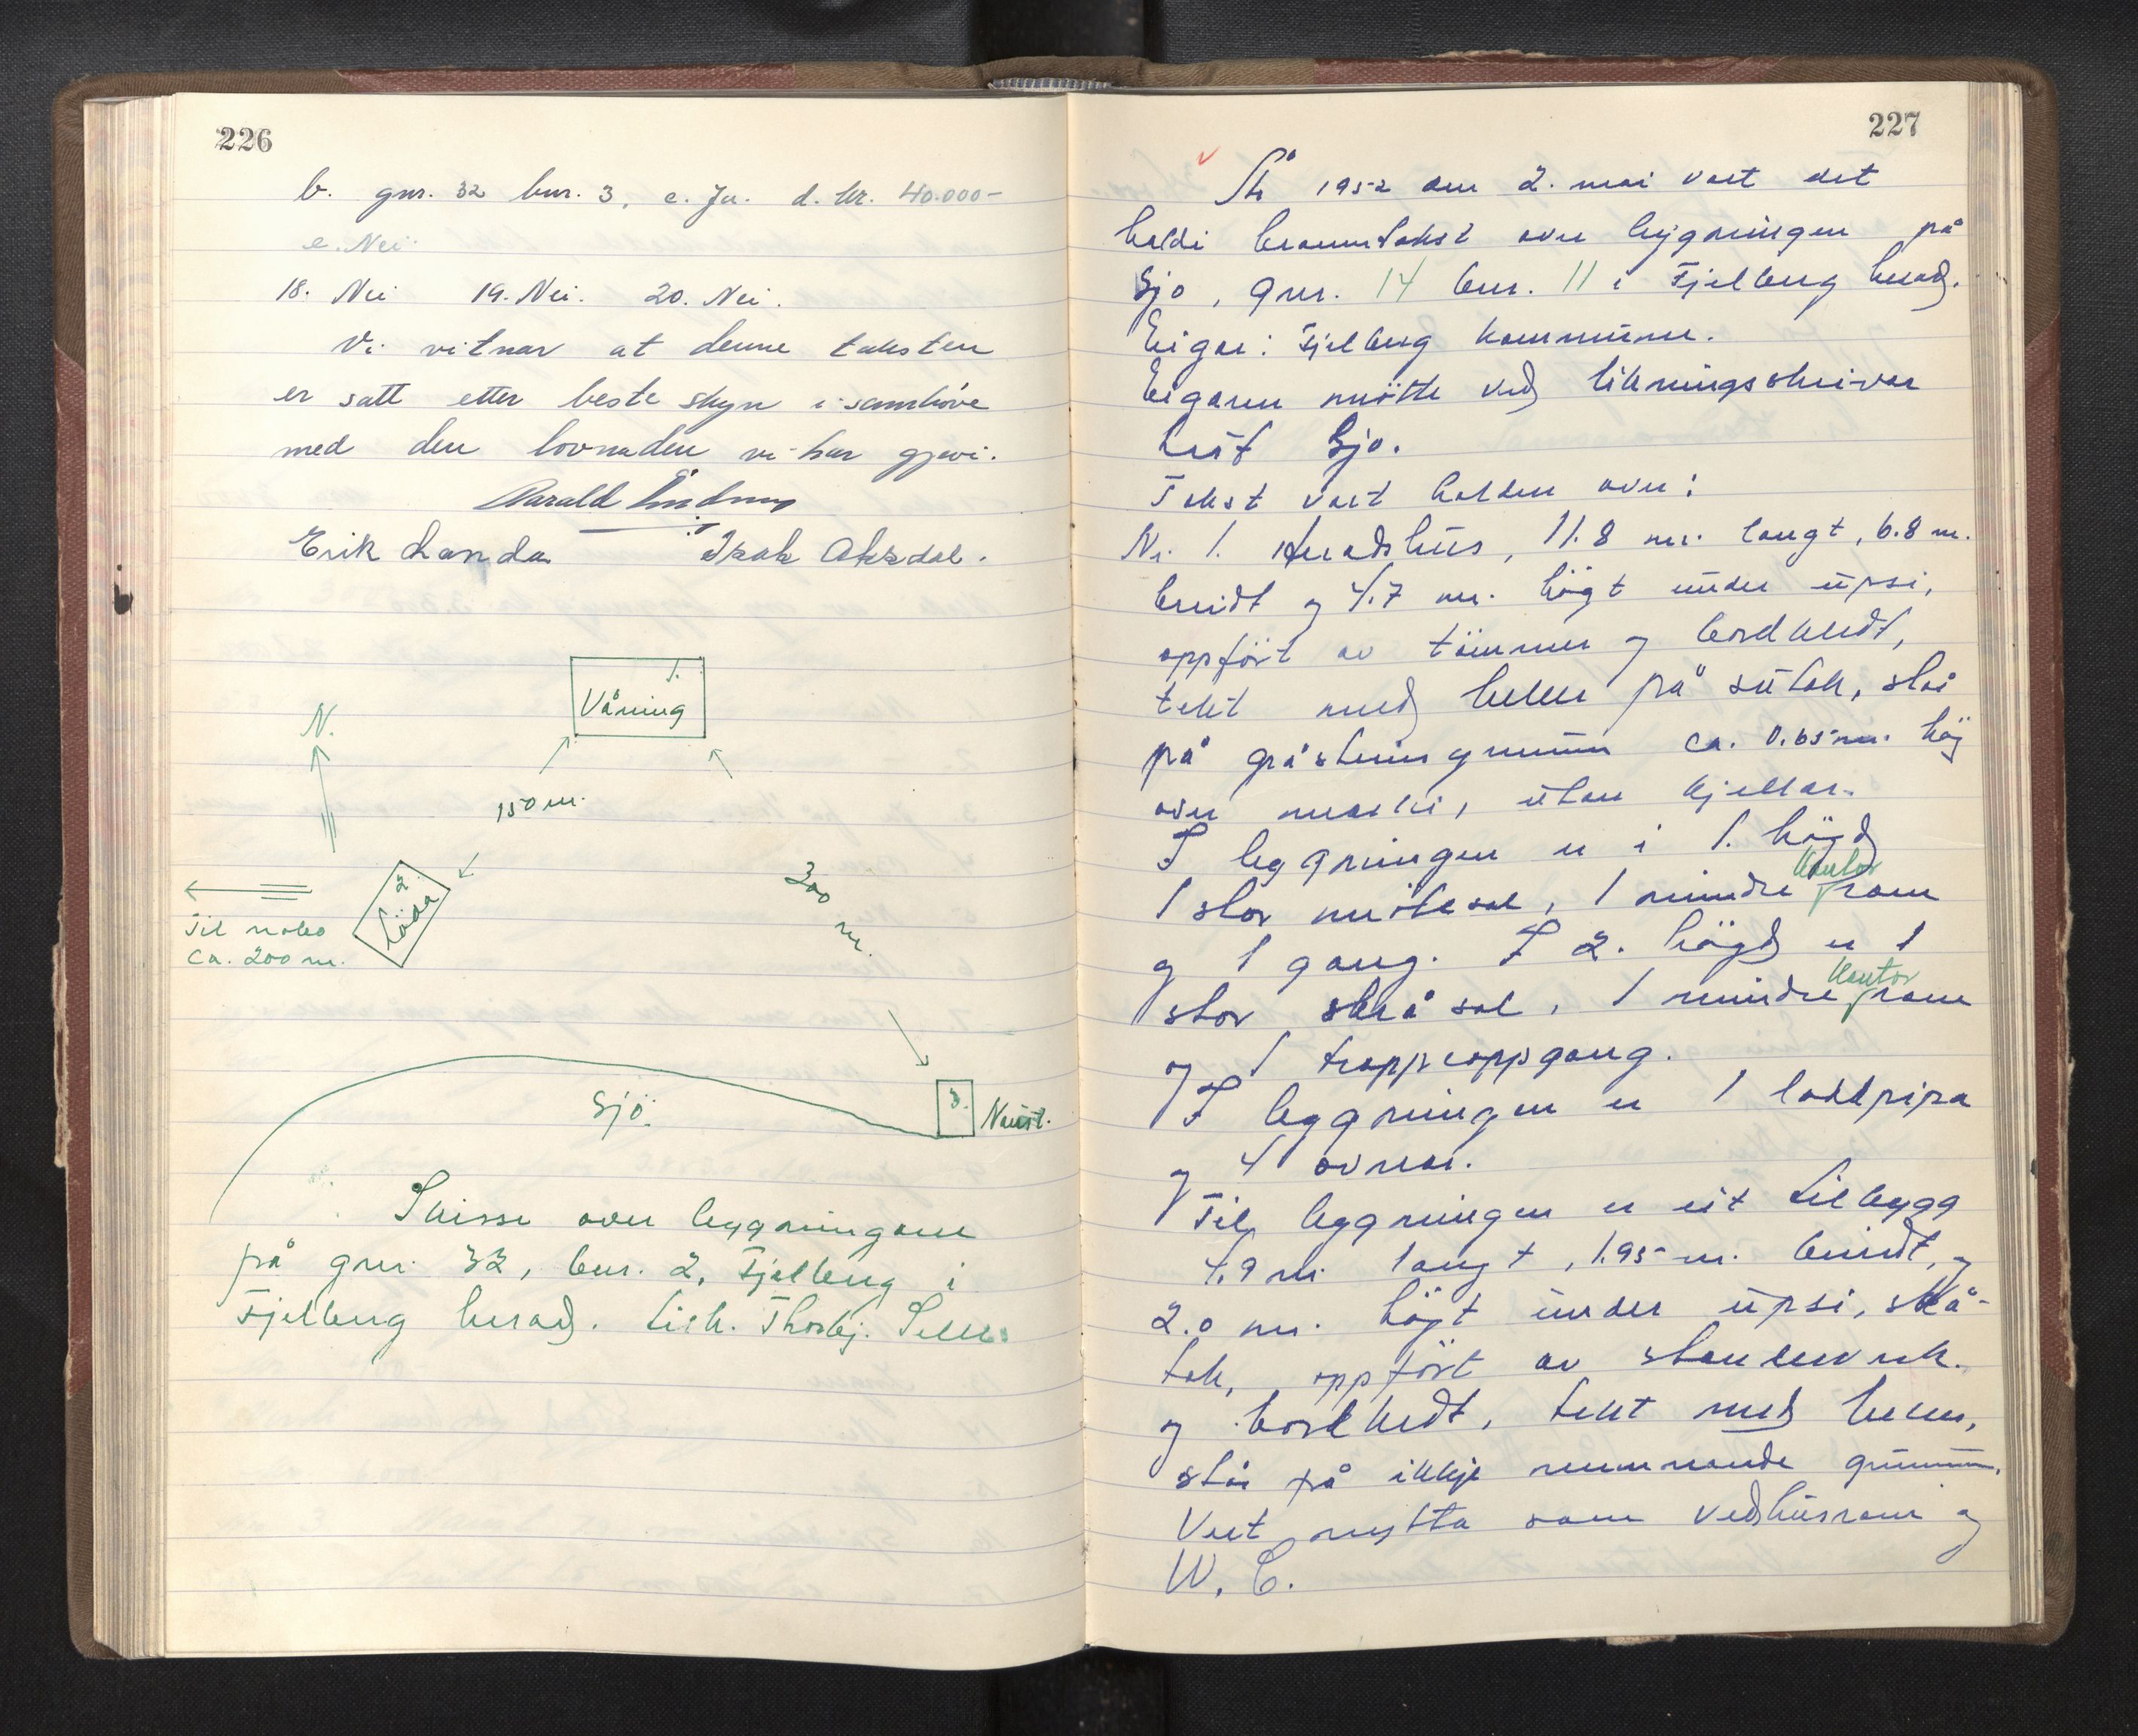 226
b. gnr. 32 bnr. 3, c. Ja. d. kr. 40.000-
e. Nei.
18. Nei 19. Nei. 20. Nei.
Vi vitnar at denne taksten
er satt etter beste skyn i samhöve
med den lovnaden vi har gjevi.
Harald
Erik Landa Isak Aksdal.
1.
Våning
N.
150 m.
2.
Löda
300 m.
Til nabo
ca. 200 m.
Sjö.
3. Naust.
Skisse over bygningane
på gnr. 32, bnr. 2, Fjelberg i
Fjelberg herad. Eig. Thorbj.
227
År 1952 den 2. mai vart det
haldi branntakst over bygningen på
Sjo, gnr. 14 bnr. 11 i Fjelberg herad.
Eigar: Fjelberg kommune.
Eigaren mötte ved likningsskrivar
Sjo.
Takst vart halden over:
Nr. 1. Heradshus, 11.8 m. langt, 6.8 m.
breidt og 4.7 m. högt under upsi,
oppfört av tömmer og bordkledt,
tekt med heller på sutak, står
på gråsteinsgrunn ca. 0.65 m. hög
over marki, utan kjellar.
I bygningen er i 1. högd
kontor
1 stor mötesal, 1 mindre rom
og 1 gang. I 2. högd er 1
kontor
stor skråsal, 1 mindre rom
og 1 trappeoppgang.
I bygningen er 1 loddpipa
og 4 omnar.
Til bygningen er eit tilbygg
4.9 m. langt, 1.95 m. breidt, og
2.0 m. högt under upsi, skå-
tak, oppfört av stenderverk
og bordkledt, tekt med heller,
står på ikkje nemnande grunn.
Vert nytta som vedhusrom og
W. C.